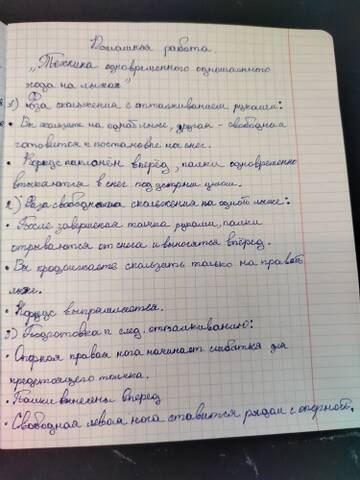 Домашная работа.
„Техника одновременного одношажного
хода на лыжах"
1) Фаза скольжения с отталкиванием руками:
• Вы скользите на одной лыже, другая - свободная
готовится к постановке на снег.
• Корпус наклонён вперёд, палки одновременно
втыкаются в снег под острым углом.
2) Фаза свободного скольжения на одной лыже:
• После завершения толчка руками, палки
отрываются от снега и выносятся вперёд.
• Вы продолжаете скользить только на правой
лыже.
• Корпус выпрямляется.
3) Подготовка к след. отталкиванию:
• Опорная правая нога начинает сгибаться для
предстоящего толчка.
• Палки вынесены вперед
• Свободная левая нога ставится рядом с опорной.